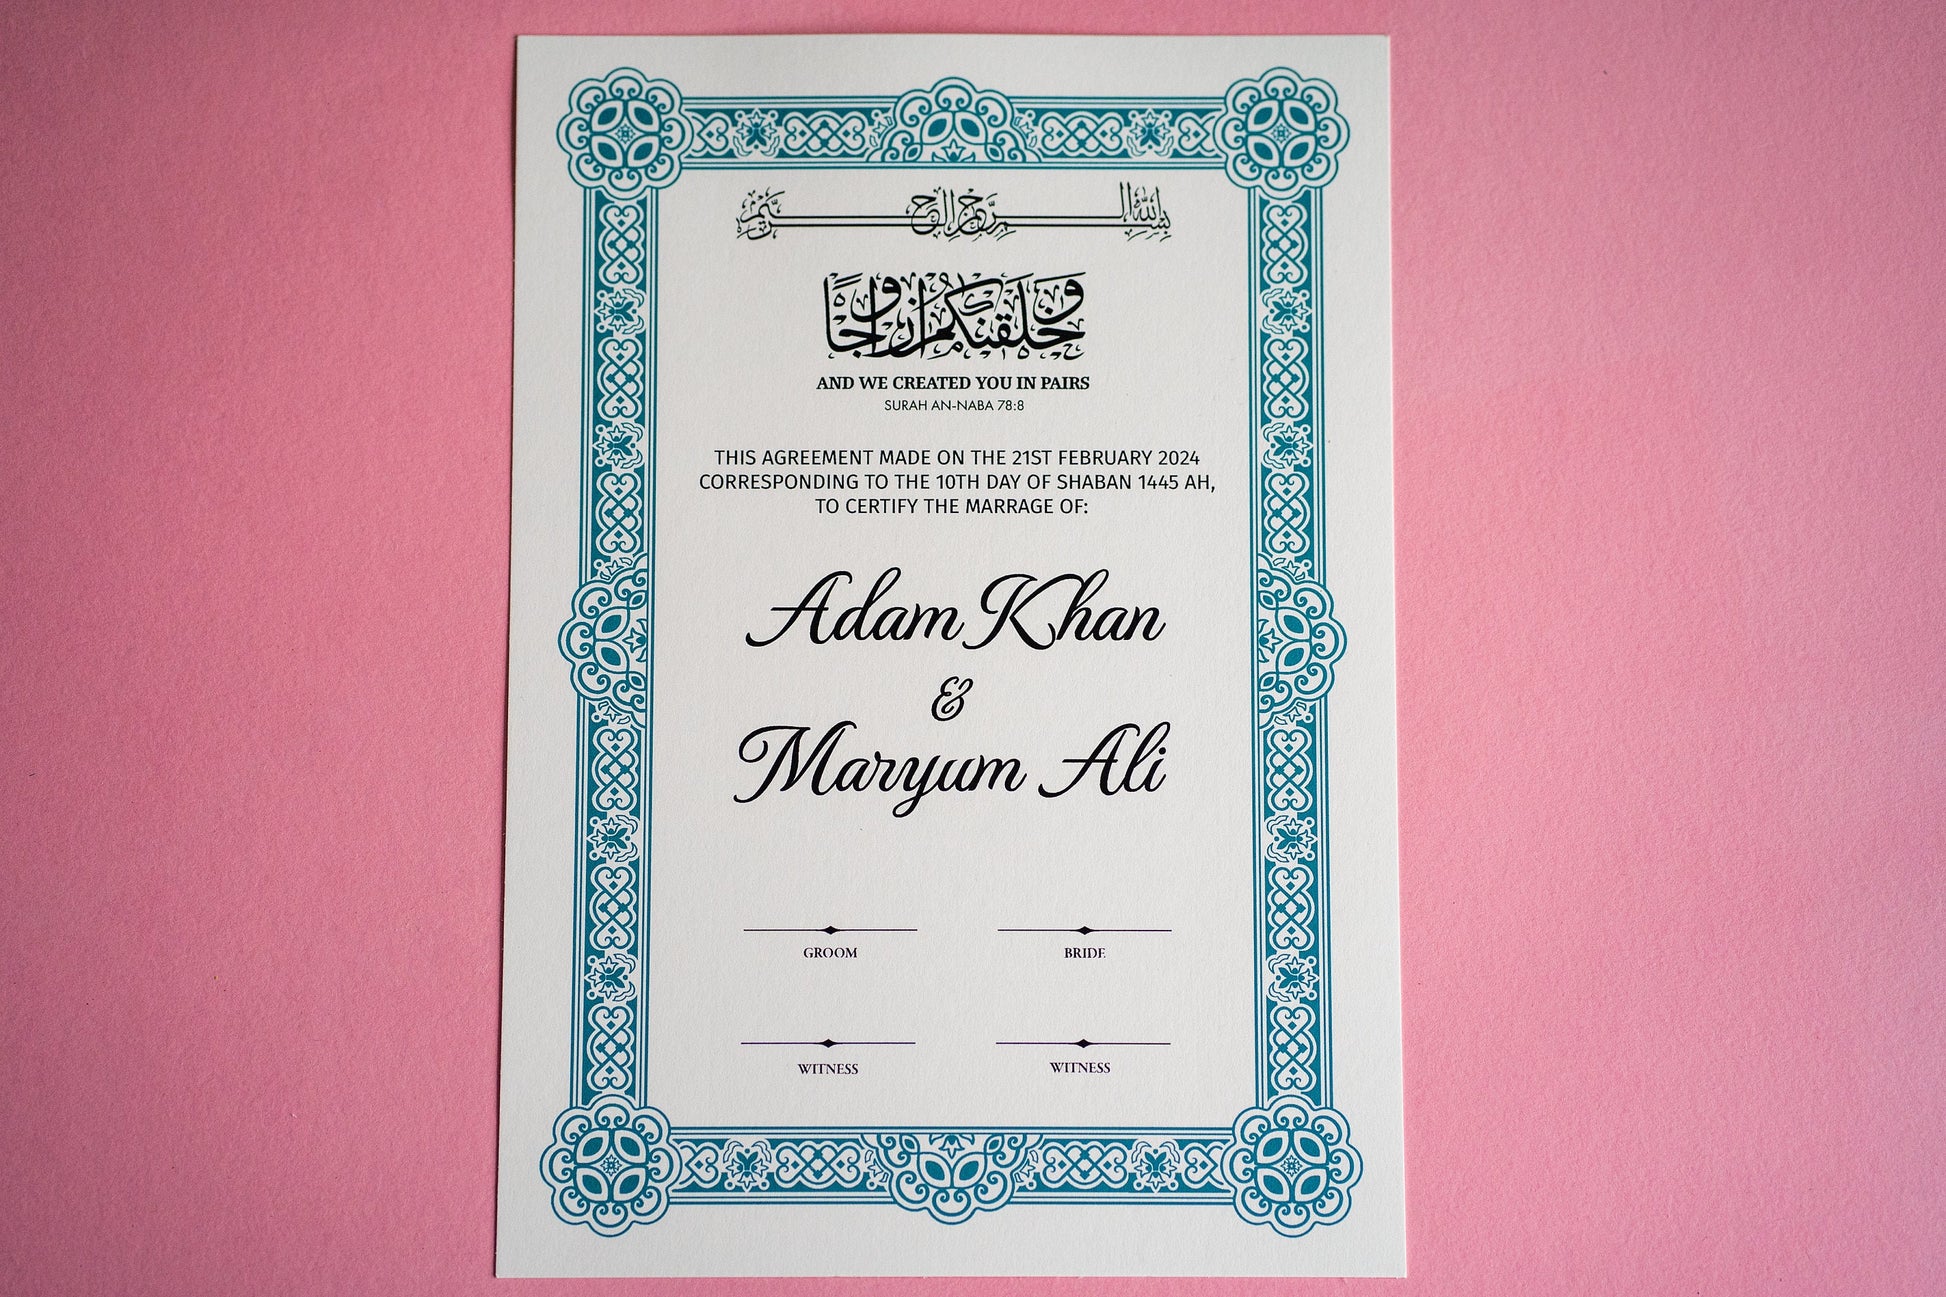 بسم الله الرحمن الرحيم
وَخَلَقْنَٰكُمْ أَزْوَٰجًا
AND WE CREATED YOU IN PAIRS
SURAH AN-NABA 78:8
THIS AGREEMENT MADE ON THE 21ST FEBRUARY 2024
CORRESPONDING TO THE 10TH DAY OF SHABAN 1445 AH,
TO CERTIFY THE MARRAGE OF:
Adam Khan
&
Maryum Ali
GROOM
BRIDE
WITNESS
WITNESS